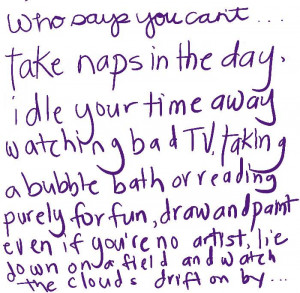 who says you can't...
take naps in the day,
idle your time away
watching bad TV, taking
a bubble bath or reading
purely for fun, draw and paint
even if you're no artist, lie
down on a field and watch
the clouds drift on by...